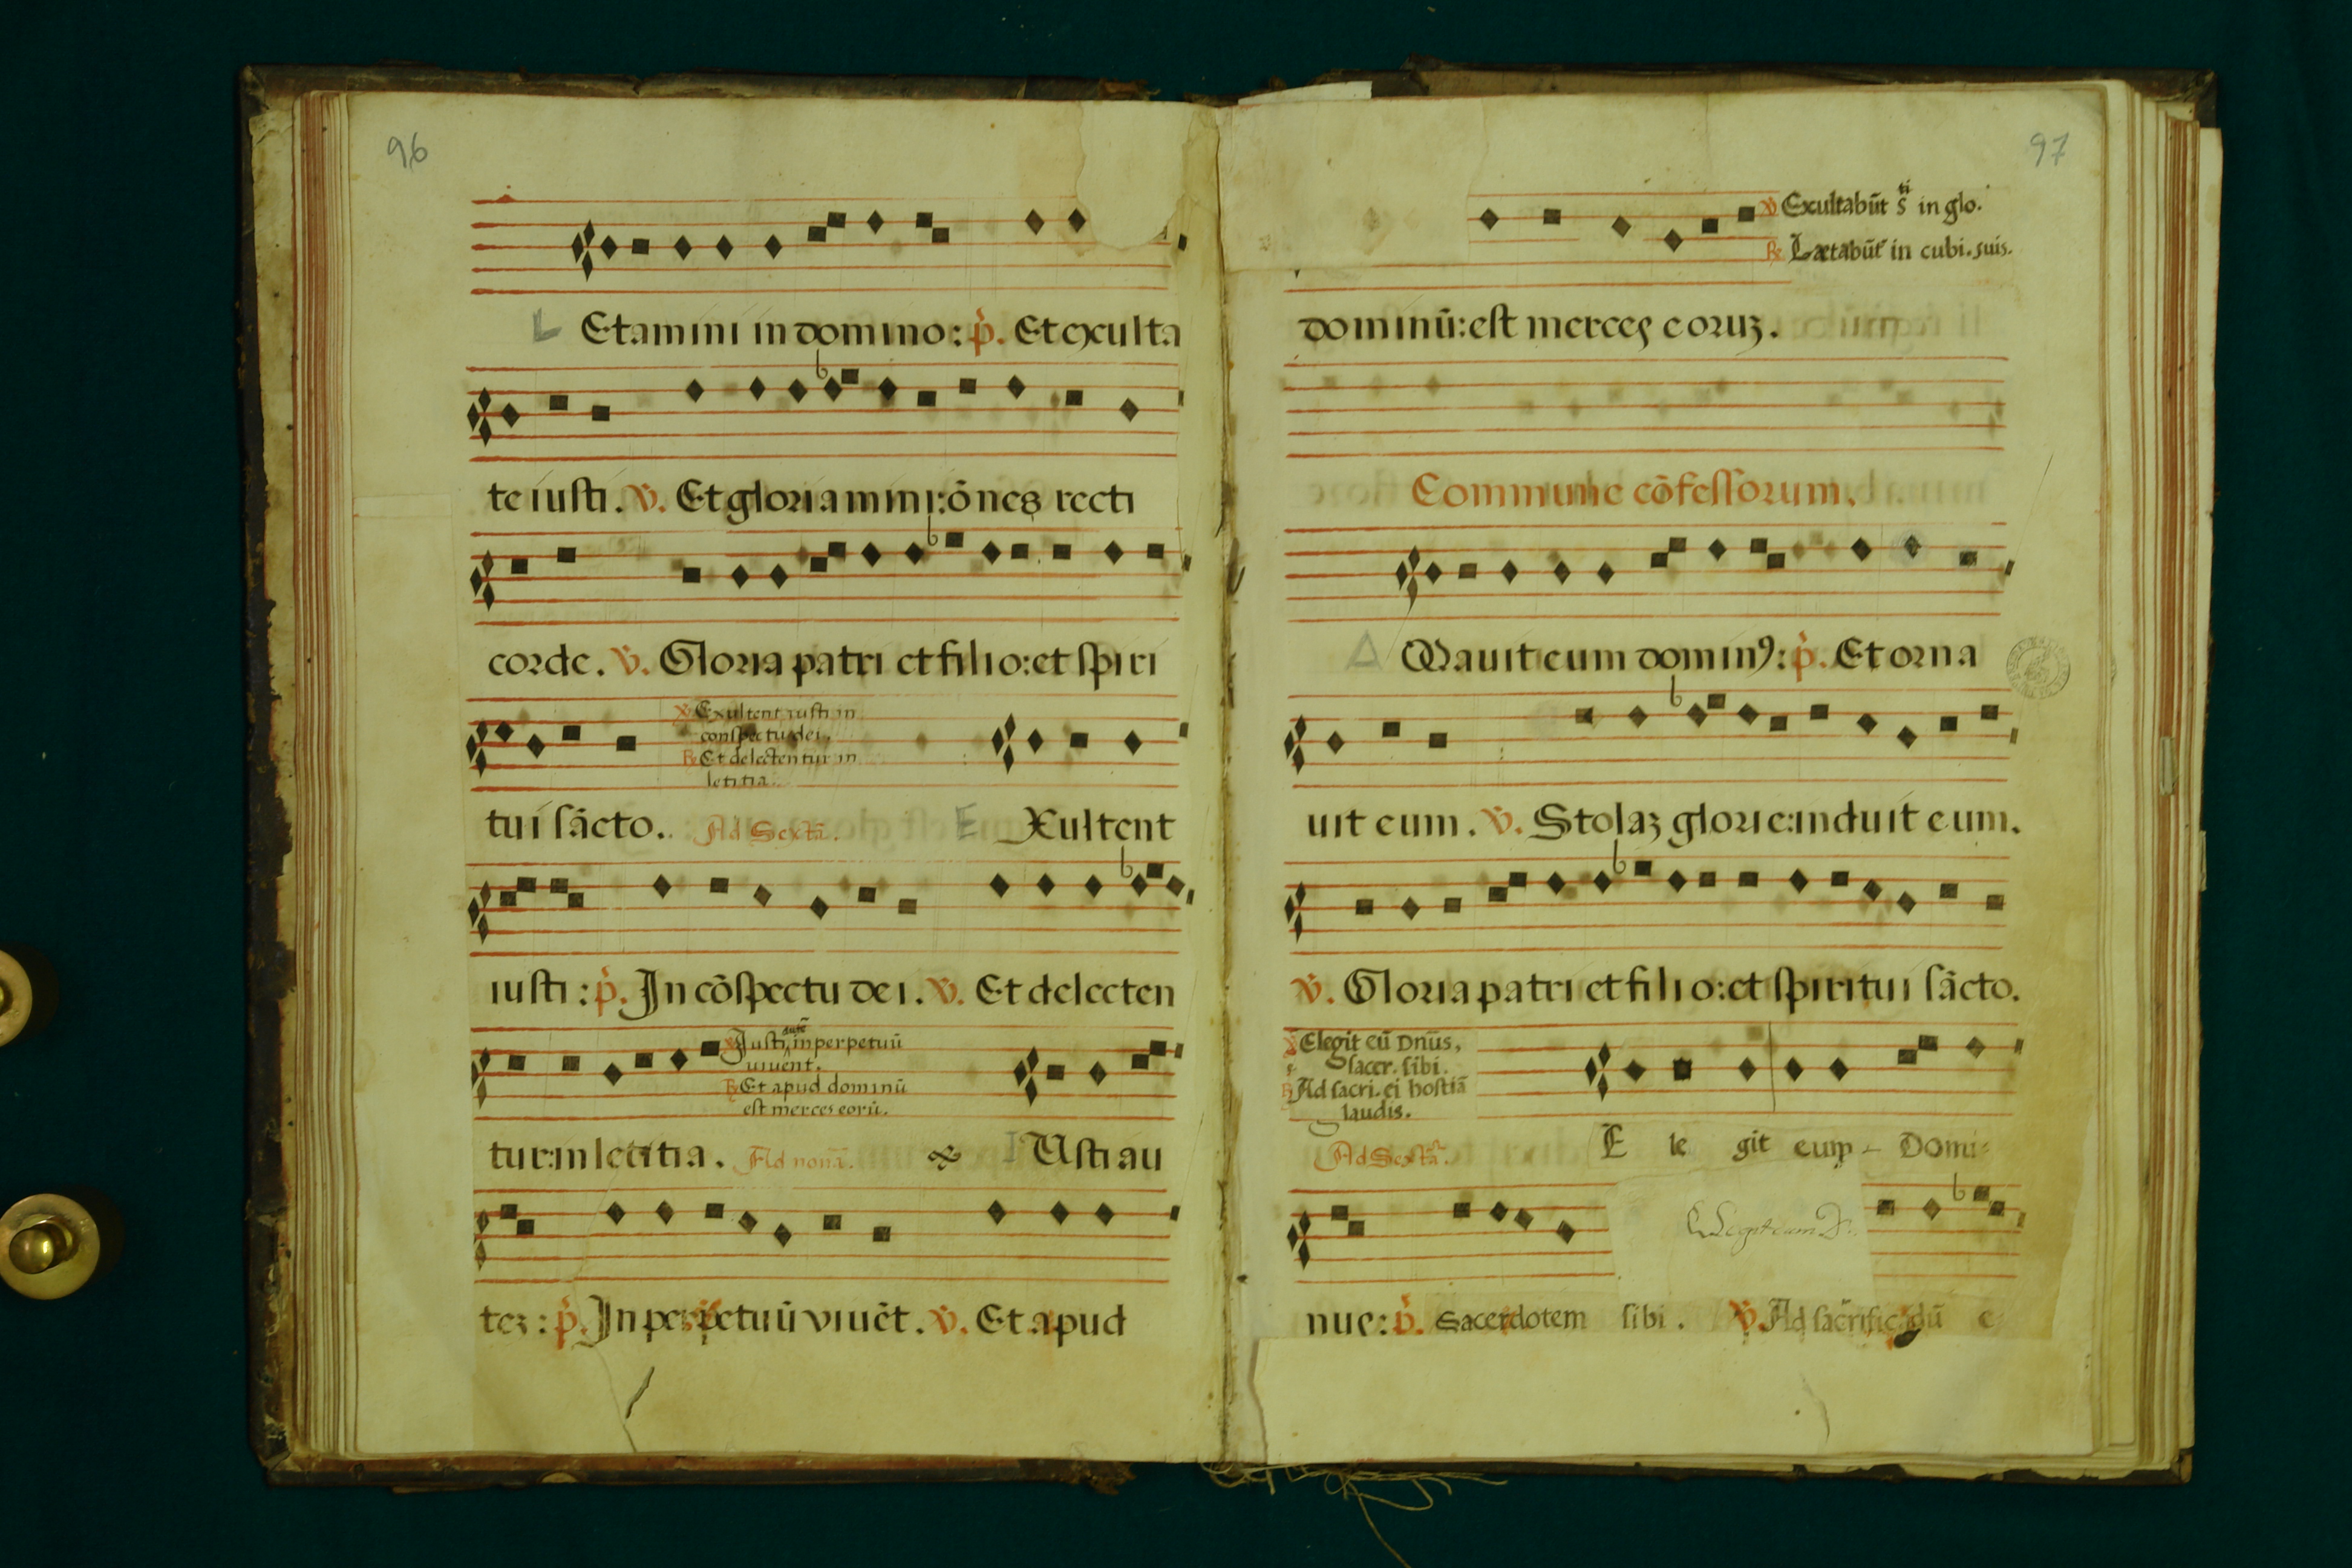 96
L Etamini in domino: p̄. Et exculta
te iusti. v̄. Et gloriamini: ōnes recti
corde. v̄. Gloria patri et filio: et spiri
v̄ Exultent iusti in
conspectu dei.
R Et delectentur in
letitia.
tui sācto. Ad Sextā. E Xultent
iusti: p̄. In cōspectu dei. v̄. Et delecten
v̄ Justi autē in perpetuū
vivent.
R Et apud dominū
est merces eorū.
tur: in letitia. Ad nonā. I Usti au
tez: p̄. In perpetuū viuēt. v̄. Et apud
97
v̄ Exultabūt s̄ti in glo.
R Lætabūt in cubi. suis.
dominū: est merces eoruz.
Commune cōfessorum.
A Mauit eum dominꝰ: p̄. Et orna
uit eum. v̄. Stolaz glorie: induit eum.
v̄. Gloria patri et filio: et spiritui sācto.
v̄ Elegit eū Dn̄us,
sacer. sibi.
R Ad sacri. ei hostiā
laudis.
Ad Sextā. E le git eum Domi-
Elegit eum D.
nus: p̄. Sacerdotem sibi. v̄. Ad sacrificādū e-